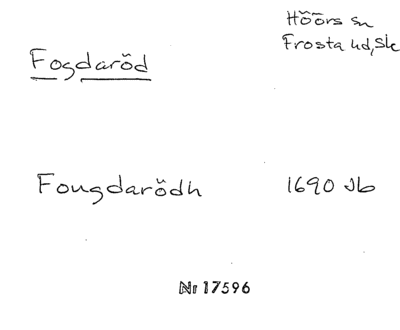 Höörs sn
Frosta hd, Sk
Fogdaröd
Fougdarödh 1690 Jb
Nr 17596